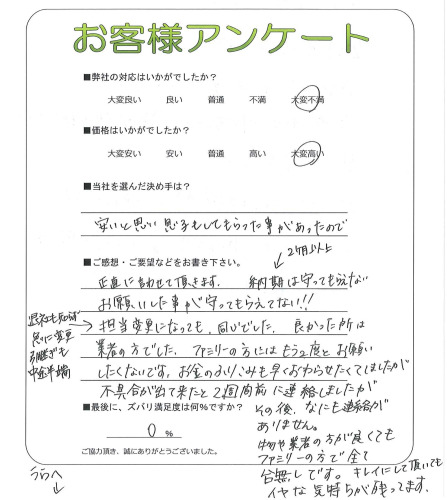 お客様アンケート
■弊社の対応はいかがでしたか?
大変良い 良い 普通 不満 大変不満
■価格はいかがでしたか?
大変安い 安い 普通 高い 大変高い
■当社を選んだ決め手は?
安いと思い 息子もしてもらった事があったので
■ご感想・ご要望などをお書き下さい。
2ヶ月以上
正直に言わせて頂きます。 納期は守ってもらえない
お願いした事が守ってもらえてない!!
急に変更
引継ぎも
中途半端
→担当変更になっても、同じでした。 良かった所は
業者の方でした。ファミリーの方にはもう2度とお願い
したくないです。お金のふりこみも早くおわらせたくてしましたが
不具合が出て来たと2週間前に連絡しましたが
■最後に、ズバリ満足度は何%ですか?
0 %
その後、なにも連絡が
ありません。
物や業者の方が良くても
ファミリーの方で全て
台無しです。キレイにして頂いても
イヤな気持ちが残ってます。
ご協力頂き、誠にありがとうございました。
うらへ
↓